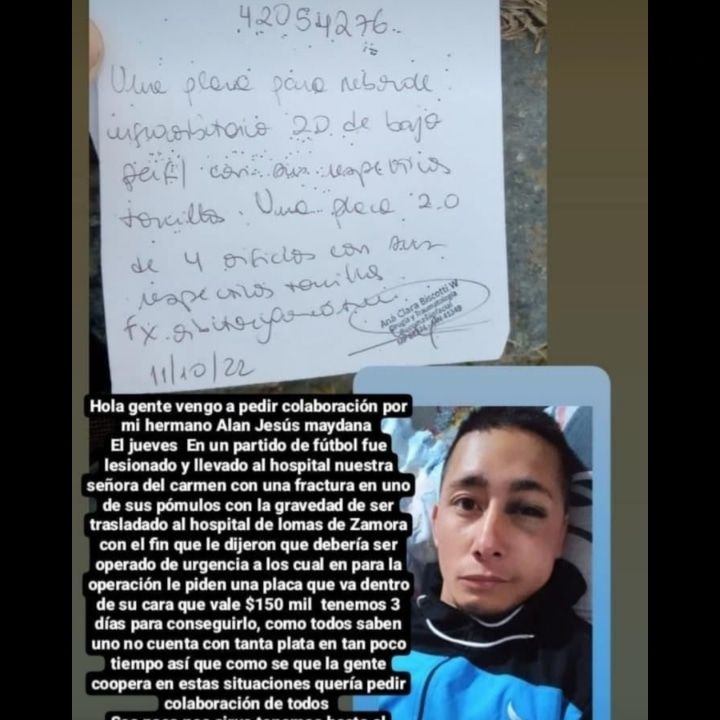 42054276
Una placa para reborde
infraorbitario 2.0 de bajo
perfil con sus respectivos
tornillos. Una placa 2.0
de 4 orificios con sus
respectivos tornillos.
Fx.
11/10/22
Ana Clara Biscotti W
Cirugía y Traumatología
Bucomaxilofacial
Hola gente vengo a pedir colaboración por
mi hermano Alan Jesús maydana
El jueves En un partido de fútbol fue
lesionado y llevado al hospital nuestra
señora del carmen con una fractura en uno
de sus pómulos con la gravedad de ser
trasladado al hospital de lomas de Zamora
con el fin que le dijeron que debería ser
operado de urgencia a los cual en para la
operación le piden una placa que va dentro
de su cara que vale $150 mil tenemos 3
días para conseguirlo, como todos saben
uno no cuenta con tanta plata en tan poco
tiempo así que como se que la gente
coopera en estas situaciones quería pedir
colaboración de todos